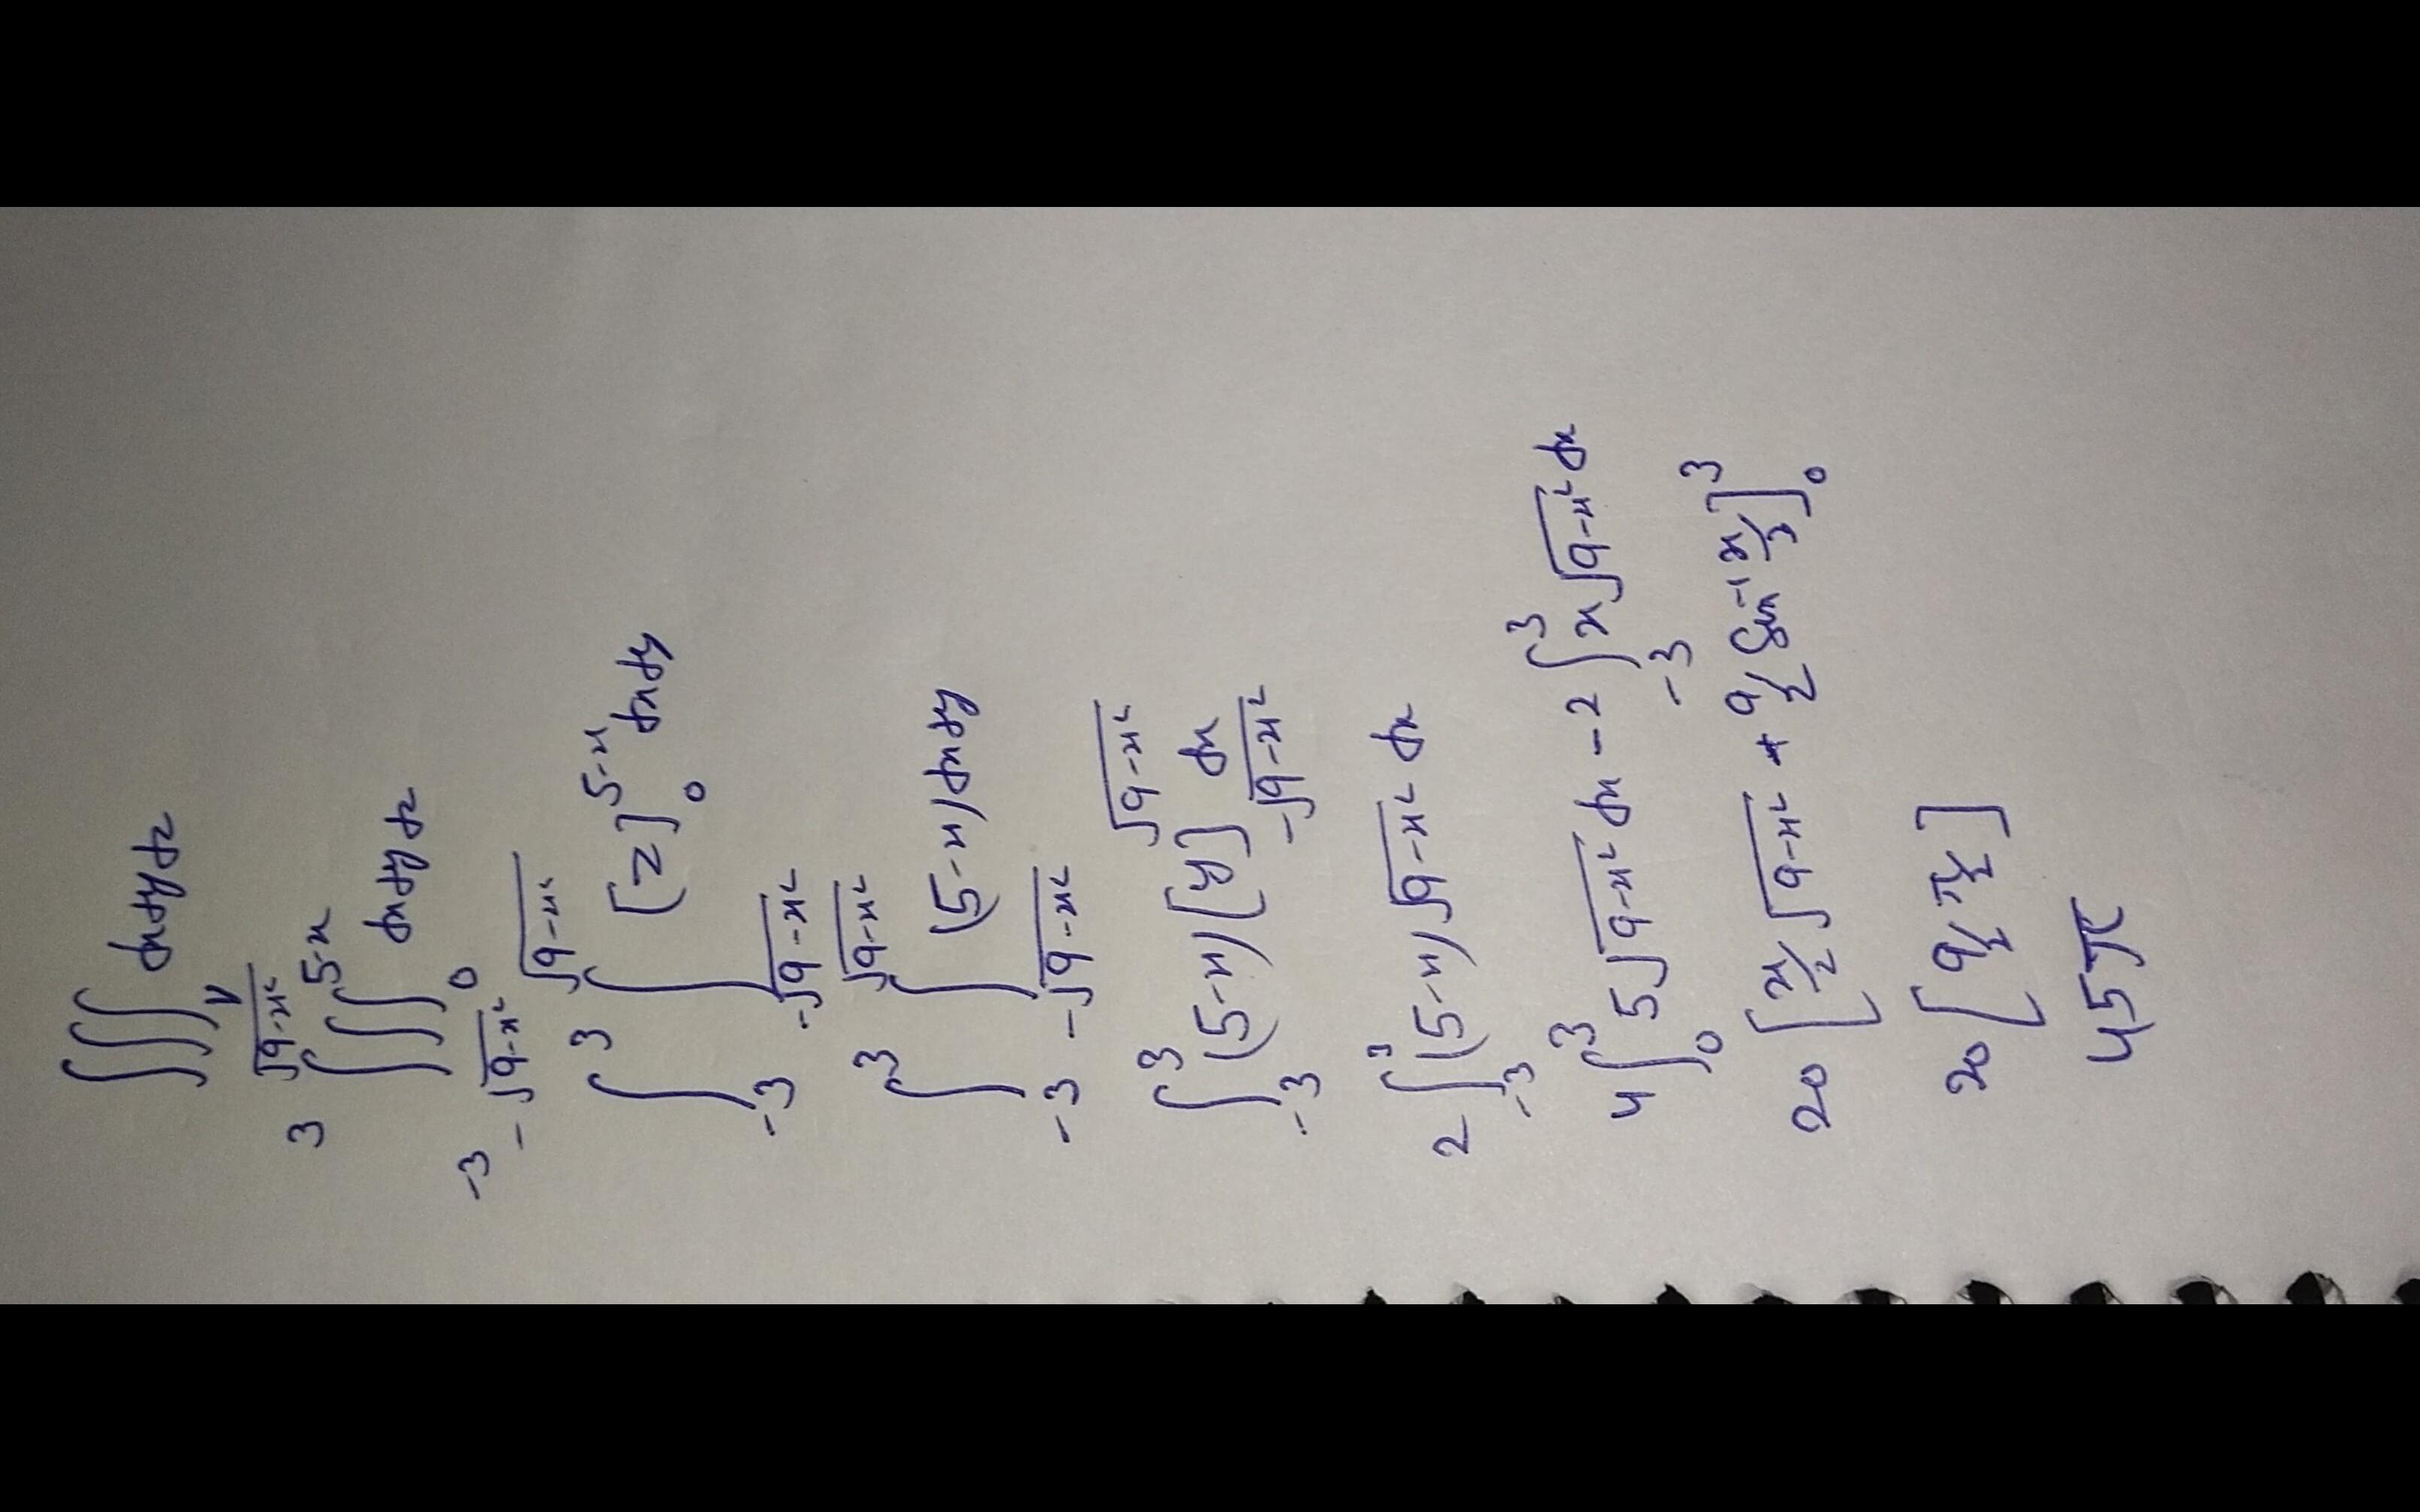 ∭_V dx dy dz
∫_{-3}^{3} ∫_{-√(9-x²)}^{√(9-x²)} ∫_0^{5-x} dx dy dz
∫_{-3}^{3} ∫_{-√(9-x²)}^{√(9-x²)} [z]_0^{5-x} dx dy
∫_{-3}^{3} ∫_{-√(9-x²)}^{√(9-x²)} (5-x) dx dy
∫_{-3}^{3} (5-x) [y]_{-√(9-x²)}^{√(9-x²)} dx
2 ∫_{-3}^{3} (5-x) √(9-x²) dx
4 ∫_0^3 5√(9-x²) dx - 2 ∫_{-3}^{3} x√(9-x²) dx
20 [x/2 √(9-x²) + 9/2 Sin⁻¹ x/3]_0^3
20 [9/2 π/2]
45π